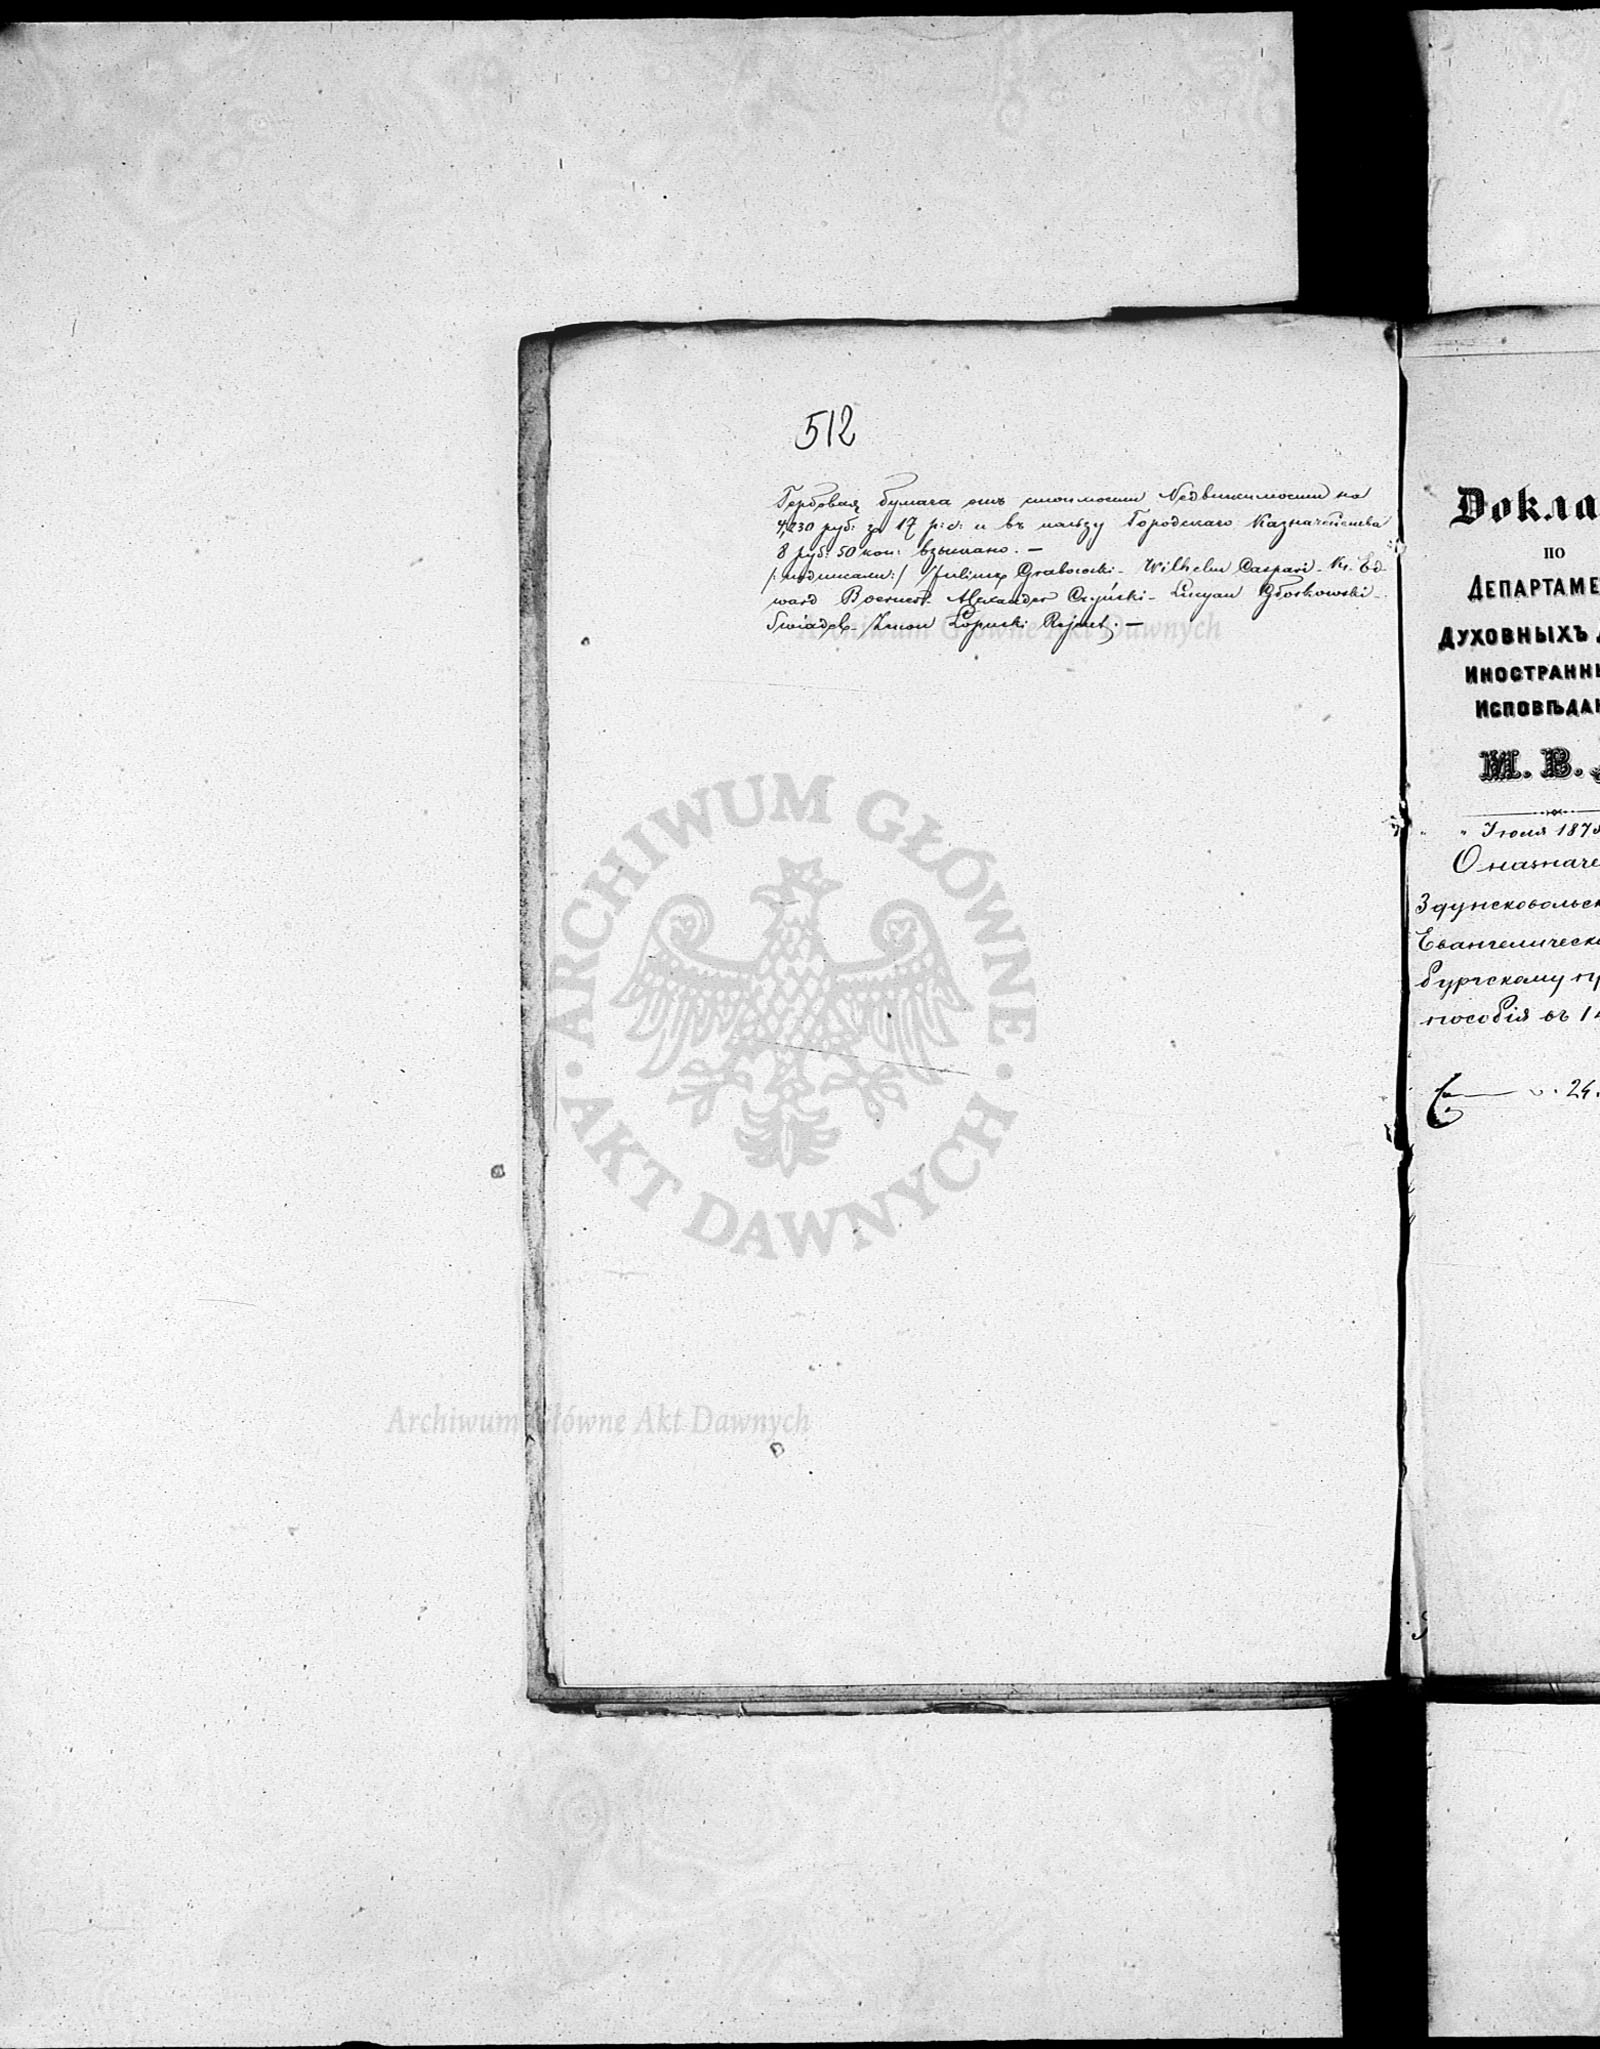 512
Гербовая бумага отъ стоимости Недвижимости на
4,230 руб: за 17 р: с: и въ пользу Городскаго Казначейства
8 руб: 50 коп: взыскано. —
/: подписали :/ Juliusz Grabowski - Wilhelm Caspari - Ks. Ed-
ward Boerner - Alexander - Lucyan Głoskowski -
Świadek - Zenon Łopuski Rejent. —
Archiwum Główne Akt Dawnych
ARCHIWUM GŁÓWNE
AKT DAWNYCH
Archiwum Główne Akt Dawnych
Докла
по
Департаме
Духовныхъ
Иностранн
Исповѣдан
М. В.
" " Іюля 187
О назначе
Здунсковольск
Евангелическо
бургскому пр
пособія въ 1
24.